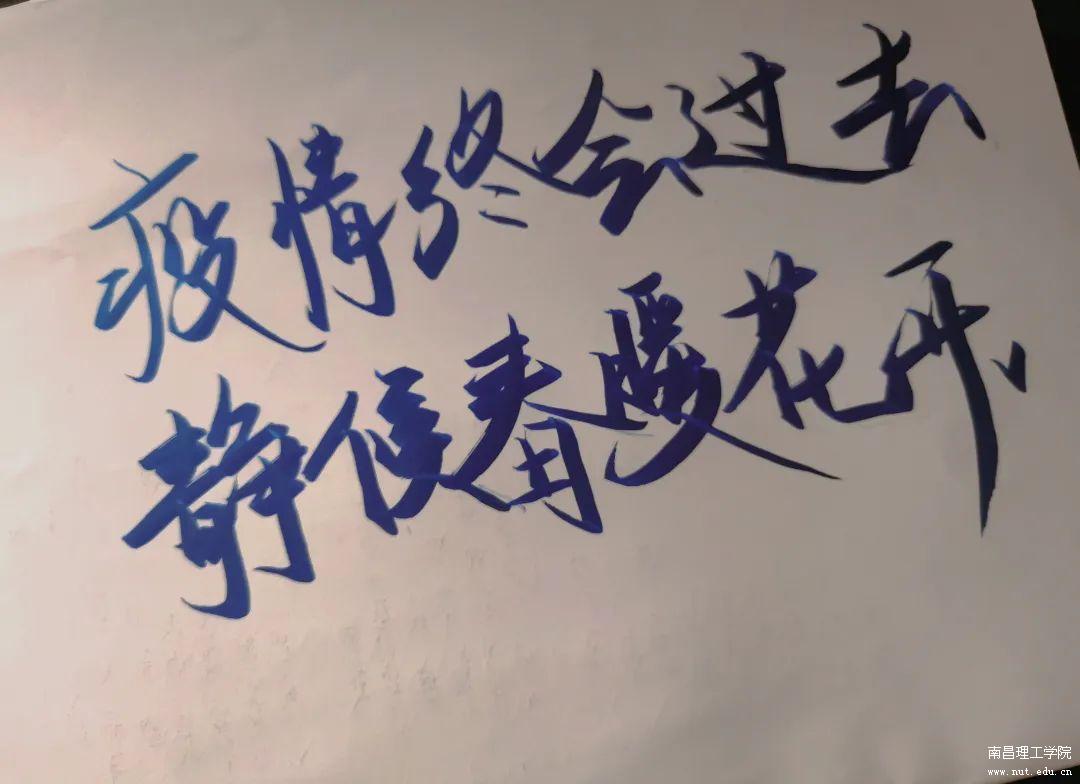 疫情终会过去
静候春暖花开、
南昌理工学院
www.nut.edu.cn